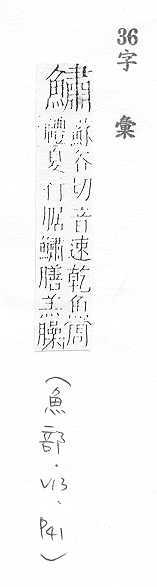 36字彙
鱐
蘇谷切音速乾魚周
禮夏行腒鱐膳膏臊
（魚部·V13、P41）